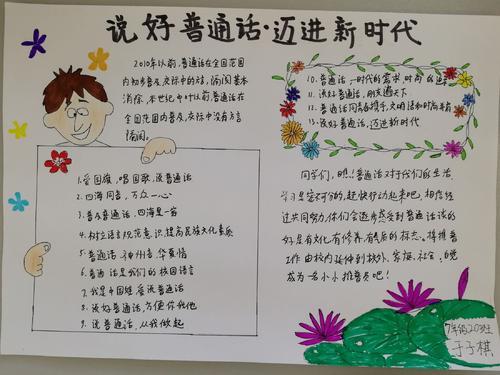 说好普通话·迈进新时代
2010年以前,普通话在全国范围
内初步普及,交际中的方言隔阂基本
消除,本世纪中叶以前,普通话在
全国范围内普及,交际中没有方言
隔阂。
1.爱国旗,唱国歌,说普通话
2.四海同音,万众一心
3.普及普通话,四海是一家
4.树立语言规范意识,提高民族文化素质
5.普通话,神州音,华夏情
6.普通话是我们的校园语言
7.我是中国娃,爱说普通话
8.说好普通话,方便你我他
9.说普通话,从我做起
10.普通话,时代的需求,时尚的追求
11.说好普通话,朋友遍天下
12.普通话同青春携手,文明语和时尚并肩
13.说好普通话,迈进新时代
同学们,听!普通话对于我们的生活、
学习是密不可分的,赶快行动起来吧,相信经
过共同努力你们会逐步感受到普通话说的
好是有文化有修养有素质的标志。将推普
工作由校内延伸到校外、家庭、社会,自觉
成为一名小小推普员吧!
7年级20班
于子棋